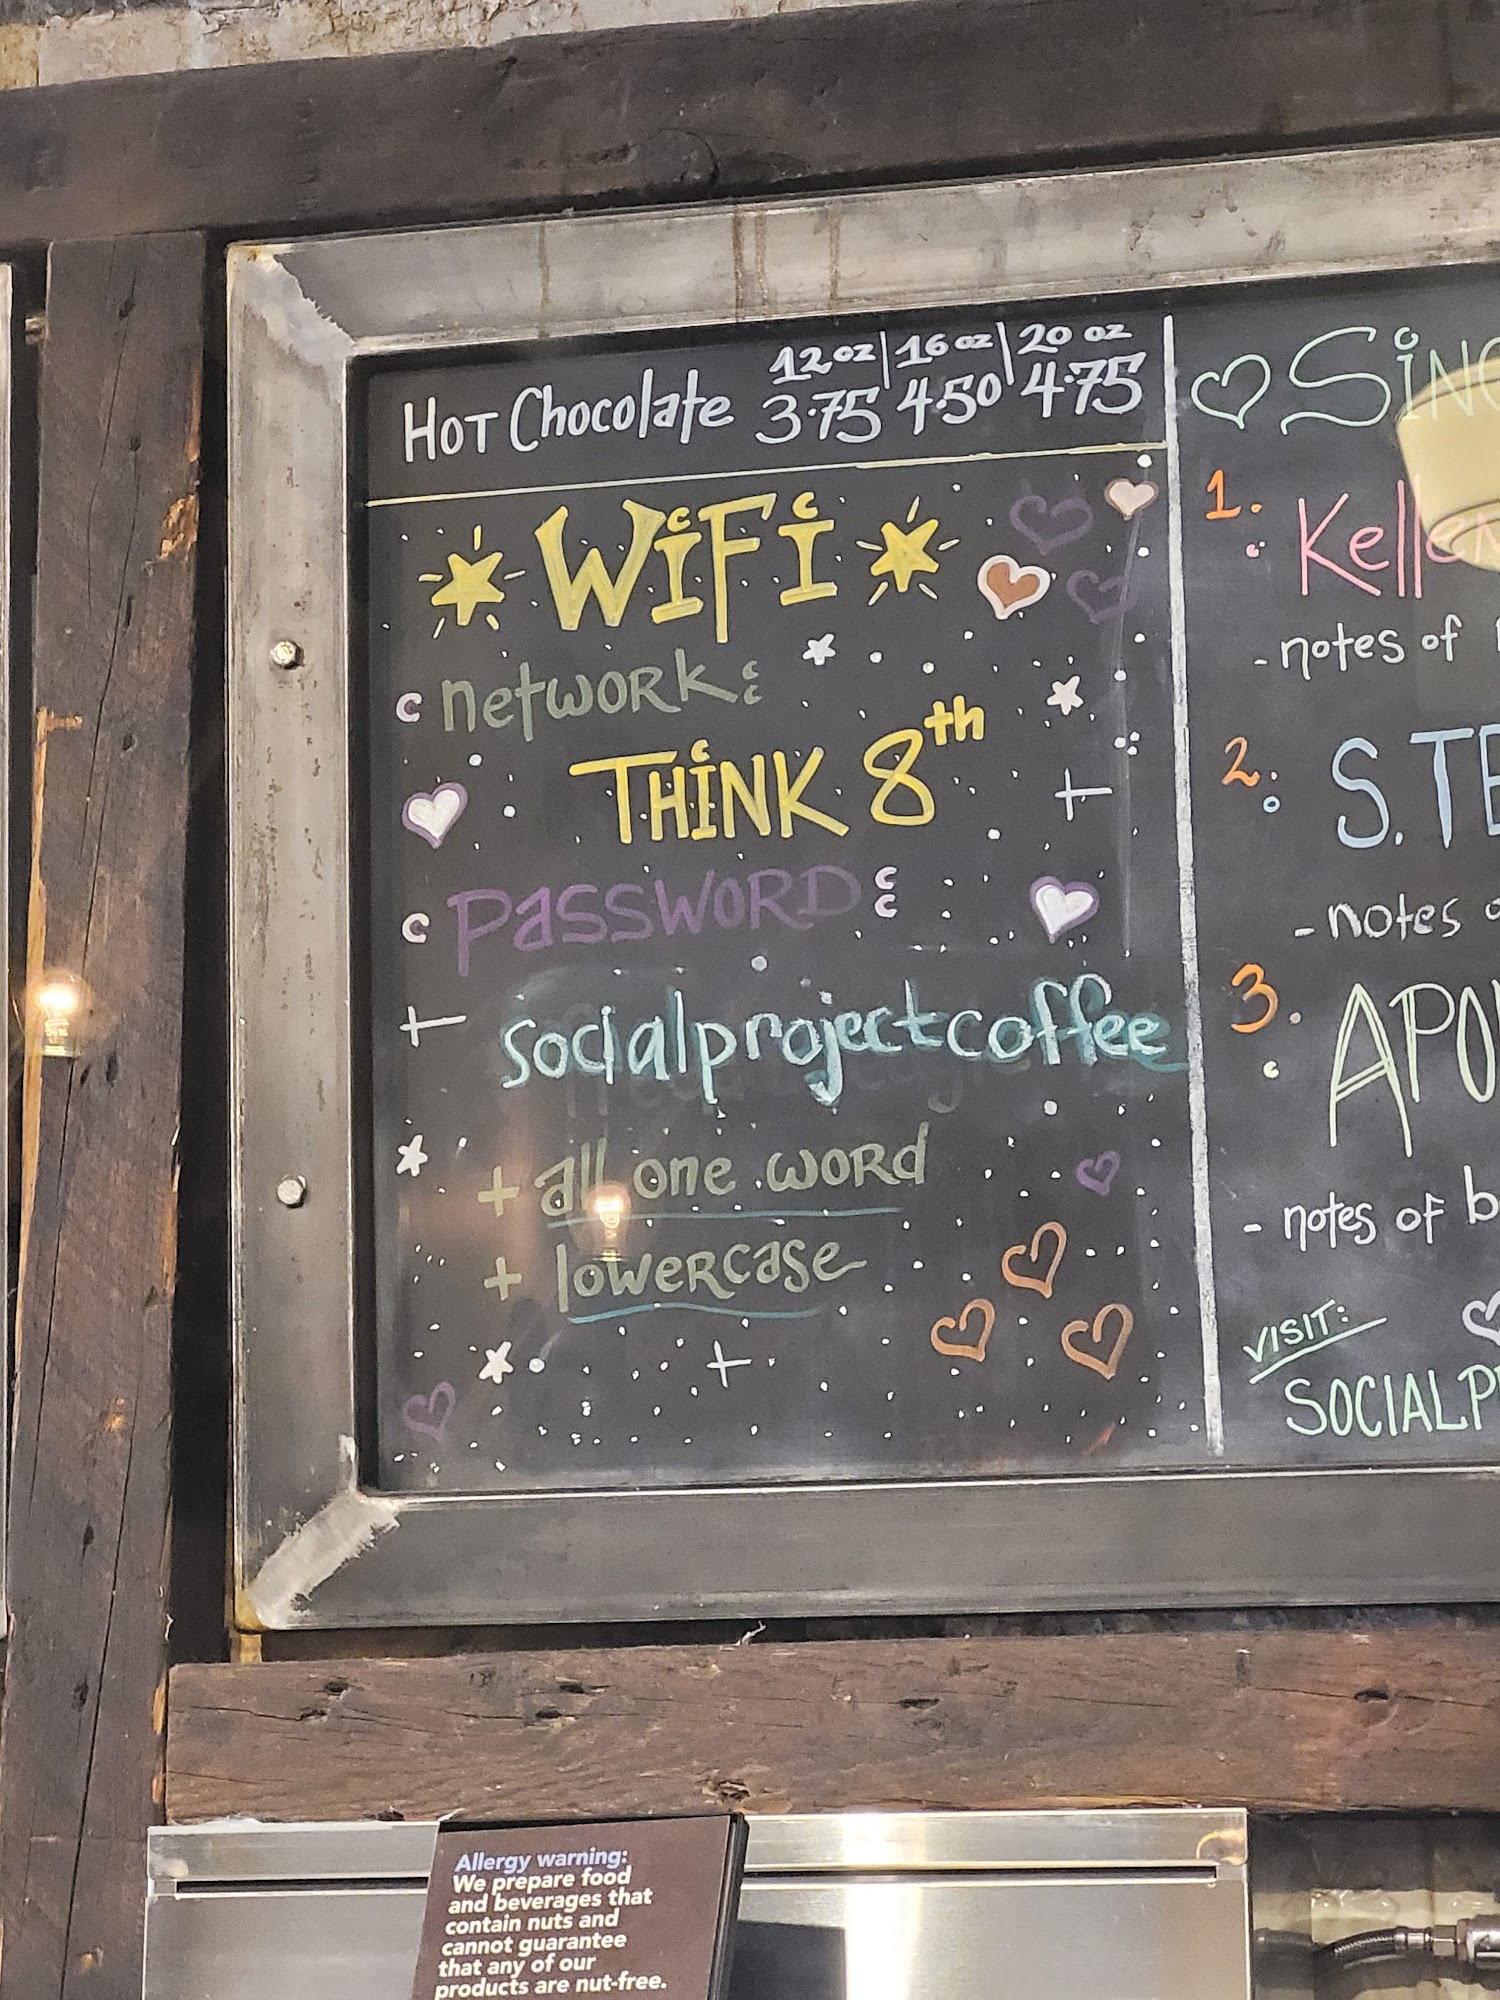 Hot Chocolate
12 oz | 16 oz | 20 oz
3.75 4.50 4.75
WiFi
network:
THiNK 8th
PASSWORD:
socialprojectcoffee
+ all one word
+ lowercase
1.
- notes of
2.
S.
- notes
3.
- notes of
VISIT:
Allergy warning:
We prepare food
and beverages that
contain nuts and
cannot guarantee
that any of our
products are nut-free.